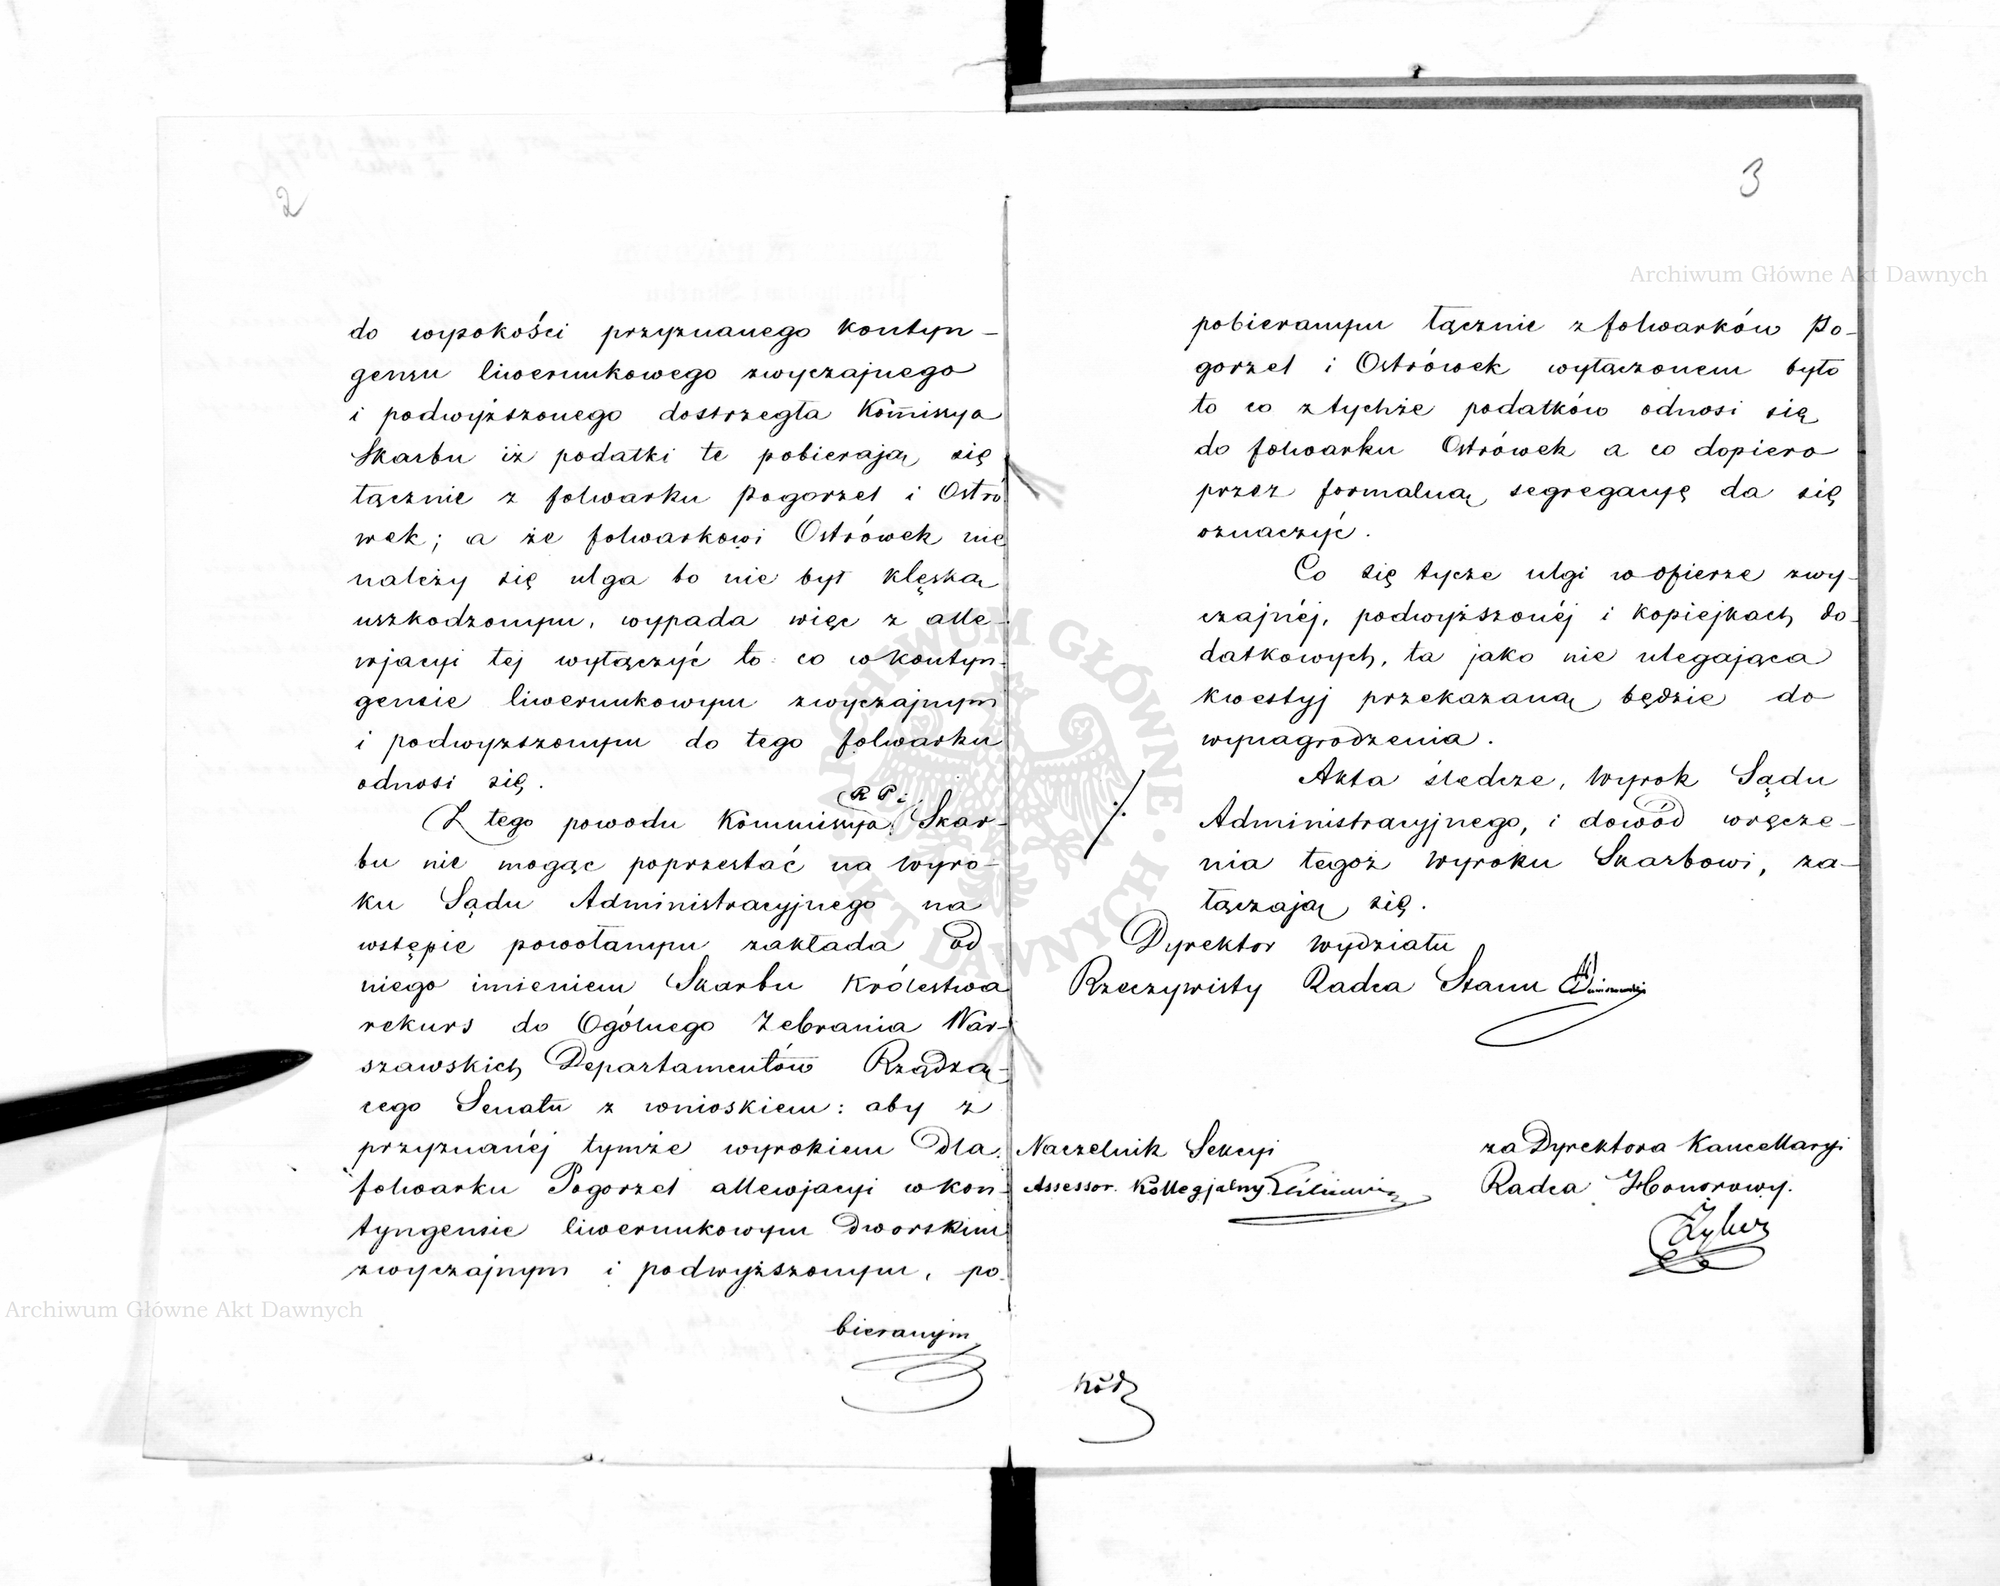 2
do wysokości przyznanego kontyn-
gensu liwerunkowego zwyczajnego
i podwyższonego dostrzegła Kom̄issya
Skarbu iż podatki te pobierają się
łącznie z folwarku Pogorzel i Ostró
wek; a że folwarkowi Ostrówek nie
należy się ulga bo nie był klęską
uszkodzonym, wypada więc z alle-
wjacyi tej wyłączyć to co w kontyn-
gensie liwerunkowym zwyczajnym
i podwyższonym do tego folwarku
odnosi się.
(R P i
Z tego powodu Kommissya Skar-
bu nie mogąc poprzestać na wyro-
ku Sądu Administracyjnego na
wstępie powołanym zakłada od
niego imieniem Skarbu Królestwa
rekurs do Ogólnego Zebrania War-
szawskich Departamentów Rządzą-
cego Senatu z wnioskiem: aby z
przyznanéj tymże wyrokiem dla
folwarku Pogorzel allewjacyi w kon-
tyngensie liwerunkowym dworskim
zwyczajnym i podwyższonym, po-
bieranym
3
pobieranym łącznie z folwarków Po-
gorzel i Ostrówek wyłączonem było
to co z tychże podatków odnosi się
do folwarku Ostrówek a co dopiero
przez formalną segregacyę da się
oznaczyć.
Co się tycze ulgi w ofierze zwy-
czajnéj, podwyższonéj i kopiejkach do-
datkowych, ta jako nie ulegająca
kwestyj przekazaną będzie do
wynagrodzenia.
Akta śledcze, Wyrok Sądu
Administracyjnego, i dowód wręcze-
nia tegoż Wyroku Skarbowi, za-
łączają się.
Dyrektor Wydziału
Rzeczywisty Radca Stanu
Naczelnik Sekcyi
Assessor Kollegjalny
za Dyrektora Kancellaryi
Radca Honorowy.
Archiwum Główne Akt Dawnych
Archiwum Główne Akt Dawnych
ARCHIWUM GŁÓWNE AKT DAWNYCH